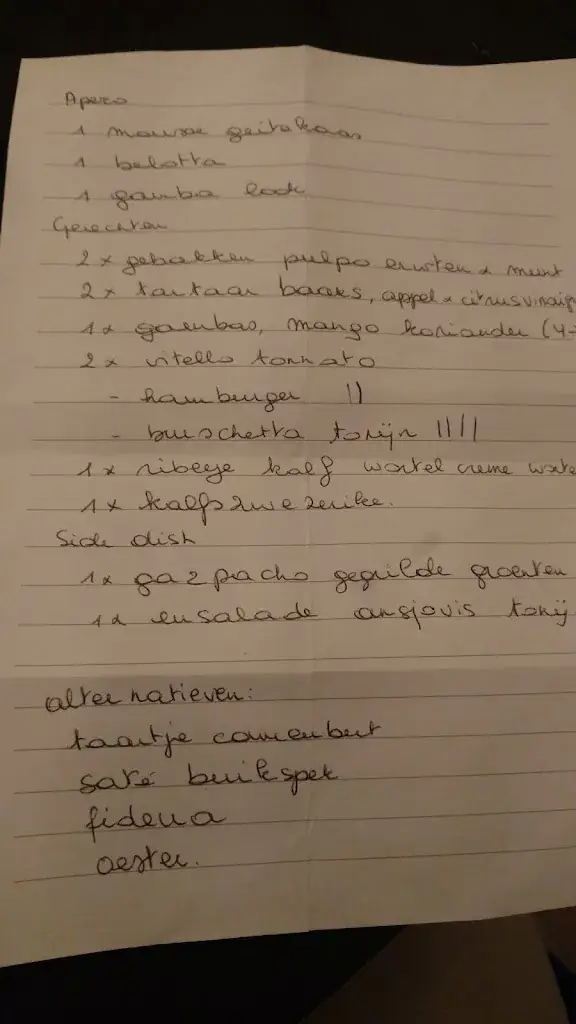 Apero
1 mousse geitekaas
1 belotta
1 gamba look
Gerechten
2 x gebakken pulpo erwten x munt
2 x tartaar baars, appel x citrusvinaigr
1 x gambas, mango koriander (4-
2 x vitello tonnato
- hamburger ||
- buschetta tonijn ||||
1 x ribeye kalf wortel creme worte
1 x kalfszwezerike.
Side dish
1x gazpacho gegrilde groenten
1x ensalade ansjovis tonij
alternatieven:
taartje camenbert
saté buikspek
fideua
oester.